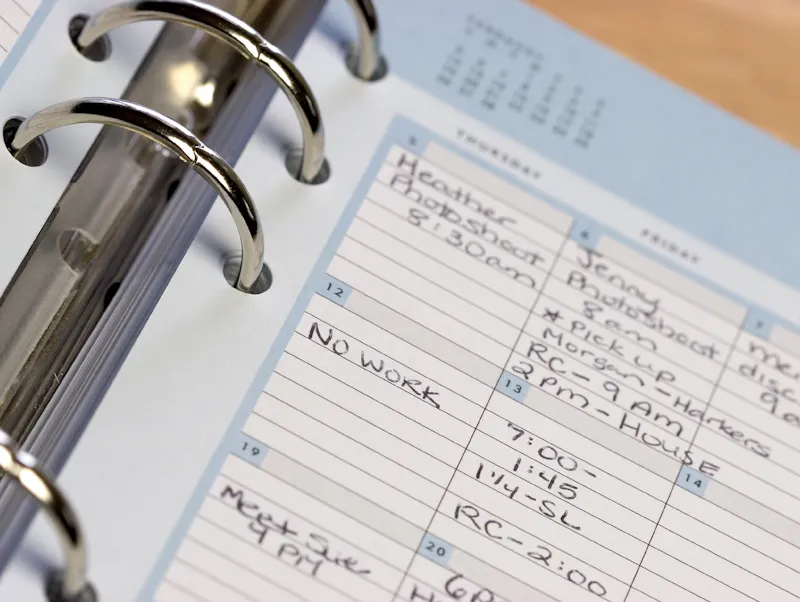 THURSDAY
FRIDAY
5
Heather
Photoshoot
8:30am
6
Jenny
Photoshoot
8am
* Pick up
Morgan-Harkers
RC-9 AM
2 PM-HOUSE
7
disc
12
NO WORK
13
7:00-
1:45
1¼-SL
RC-2:00
14
19
Meet Sue
4 PM
20